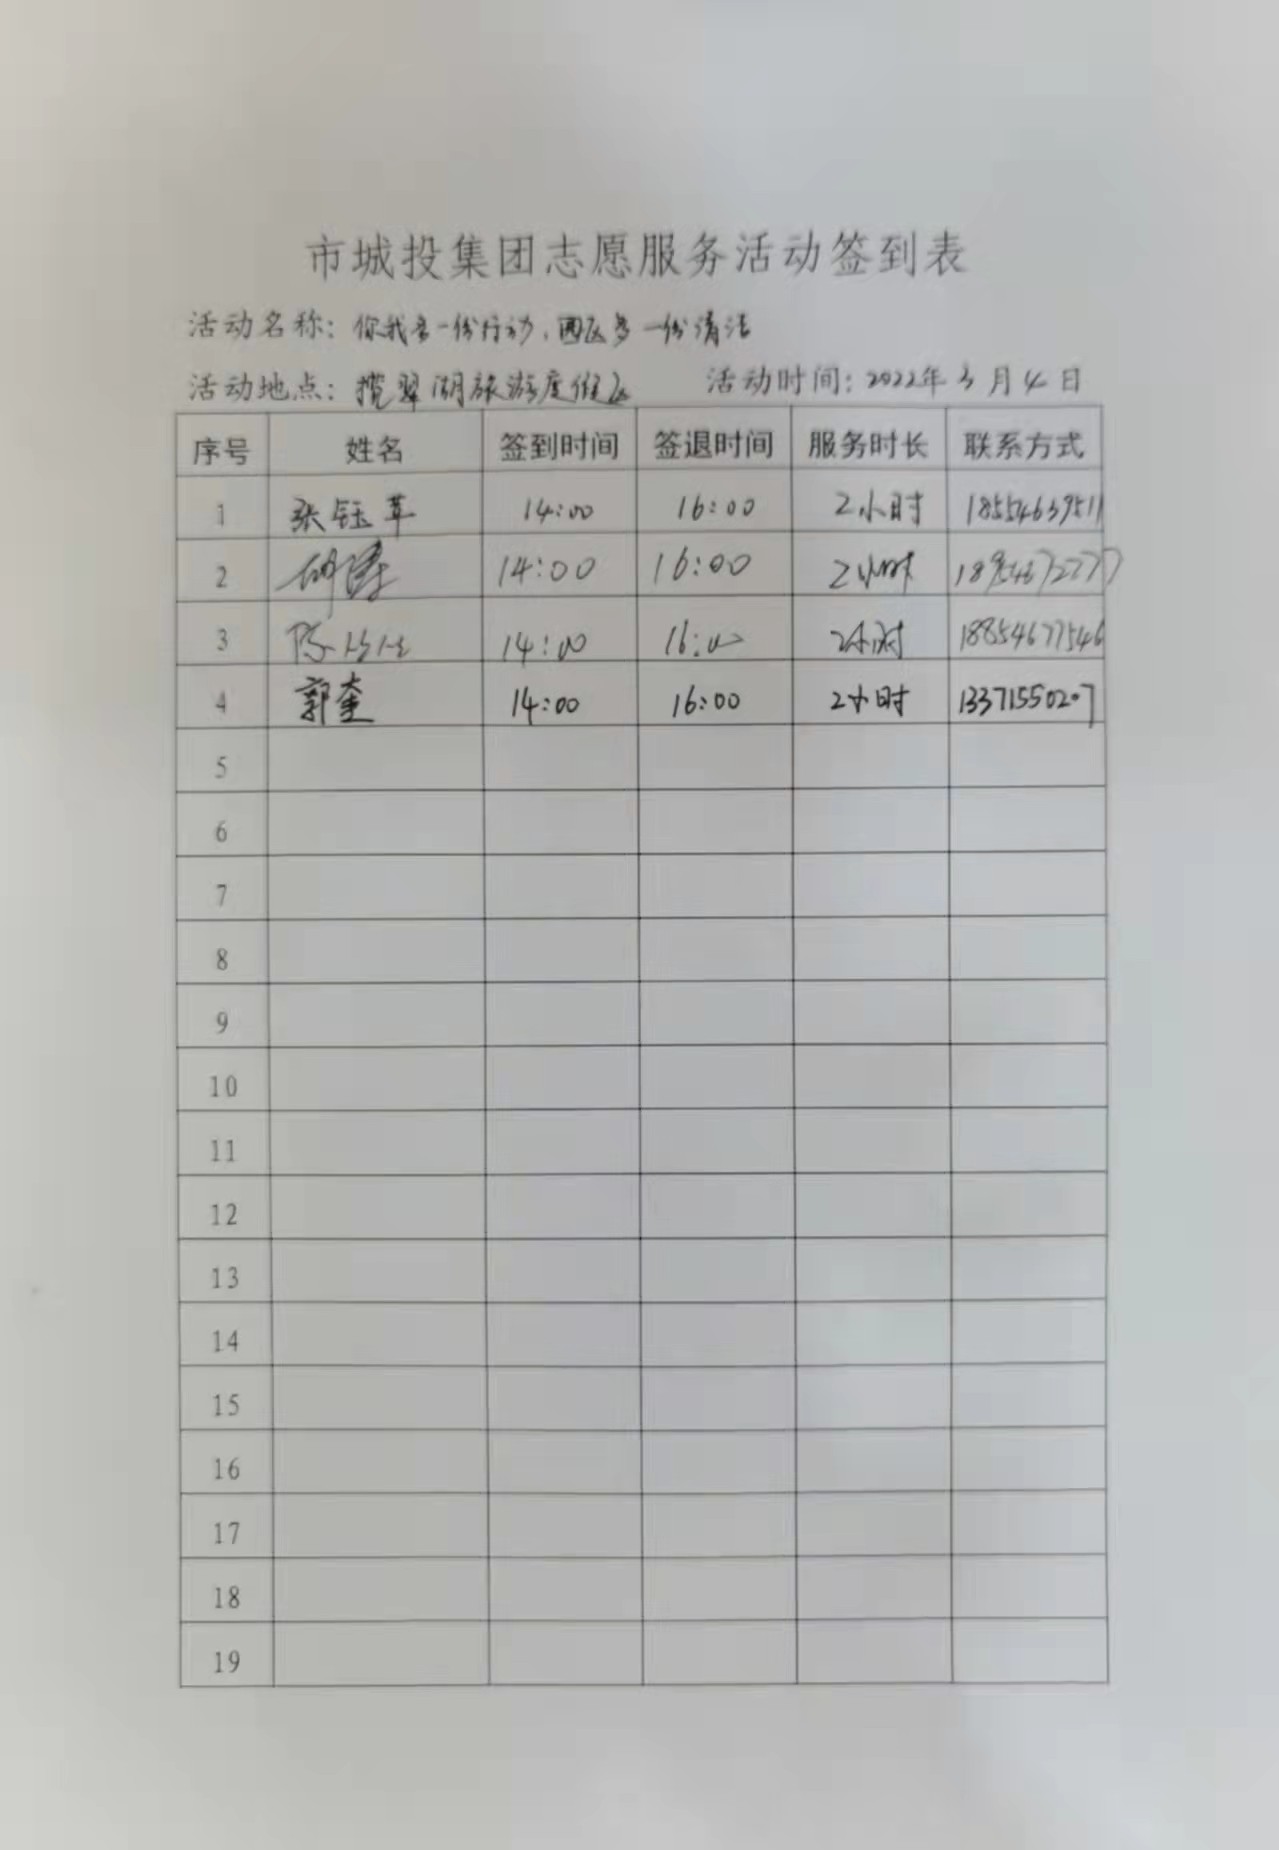 市城投集团志愿服务活动签到表
活动名称：你我多一份行动，园区多一份清洁
活动地点：揽翠湖旅游度假区 活动时间：2022年3月4日
序号 姓名 签到时间 签退时间 服务时长 联系方式
1 张钰苹 14:00 16:00 2小时 18554639511
2 14:00 16:00 2小时
3 14:00 16:00 2小时 18854677546
4 郭奎 14:00 16:00 2小时 13371550207
5
6
7
8
9
10
11
12
13
14
15
16
17
18
19